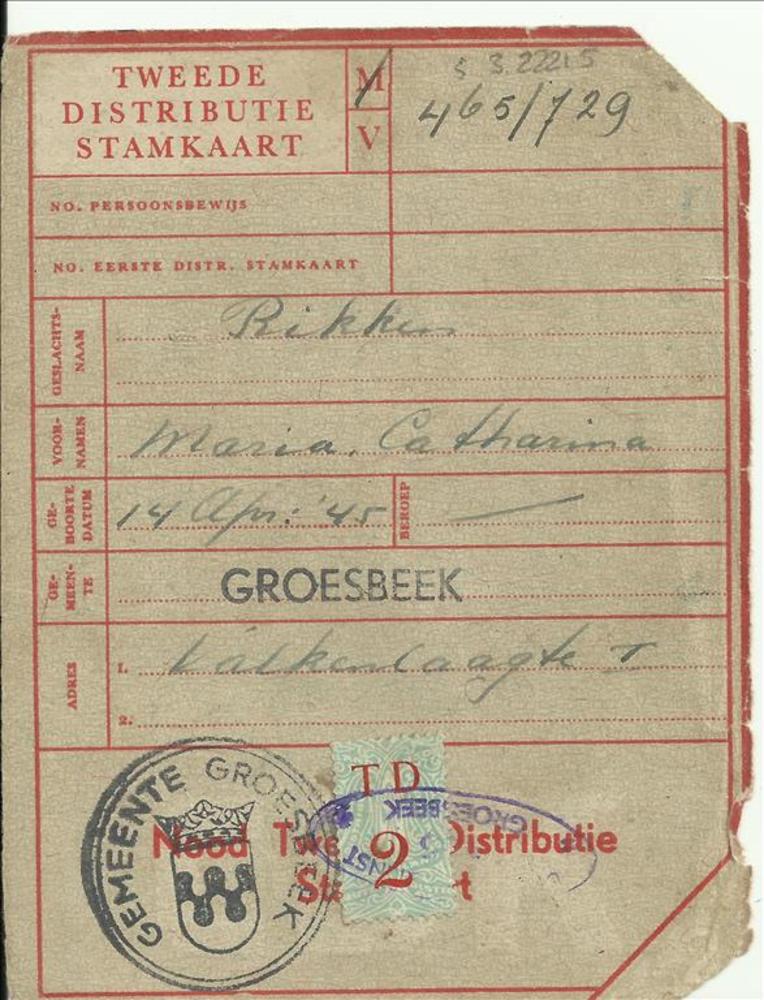 TWEEDE
DISTRIBUTIE
STAMKAART
M
V
465/729
NO. PERSOONSBEWIJS
NO. EERSTE DISTR. STAMKAART
GESLACHTS-
NAAM
Rikken
VOOR-
NAMEN
Maria, Catharina
GE-
BOORTE
DATUM
14 Apr: '45
BEROEP
GE-
MEEN-
TE
GROESBEEK
ADRES
1.
2.
GEMEENTE GROESBEEK
TD
2
GROESBEEK
Nood Distributie